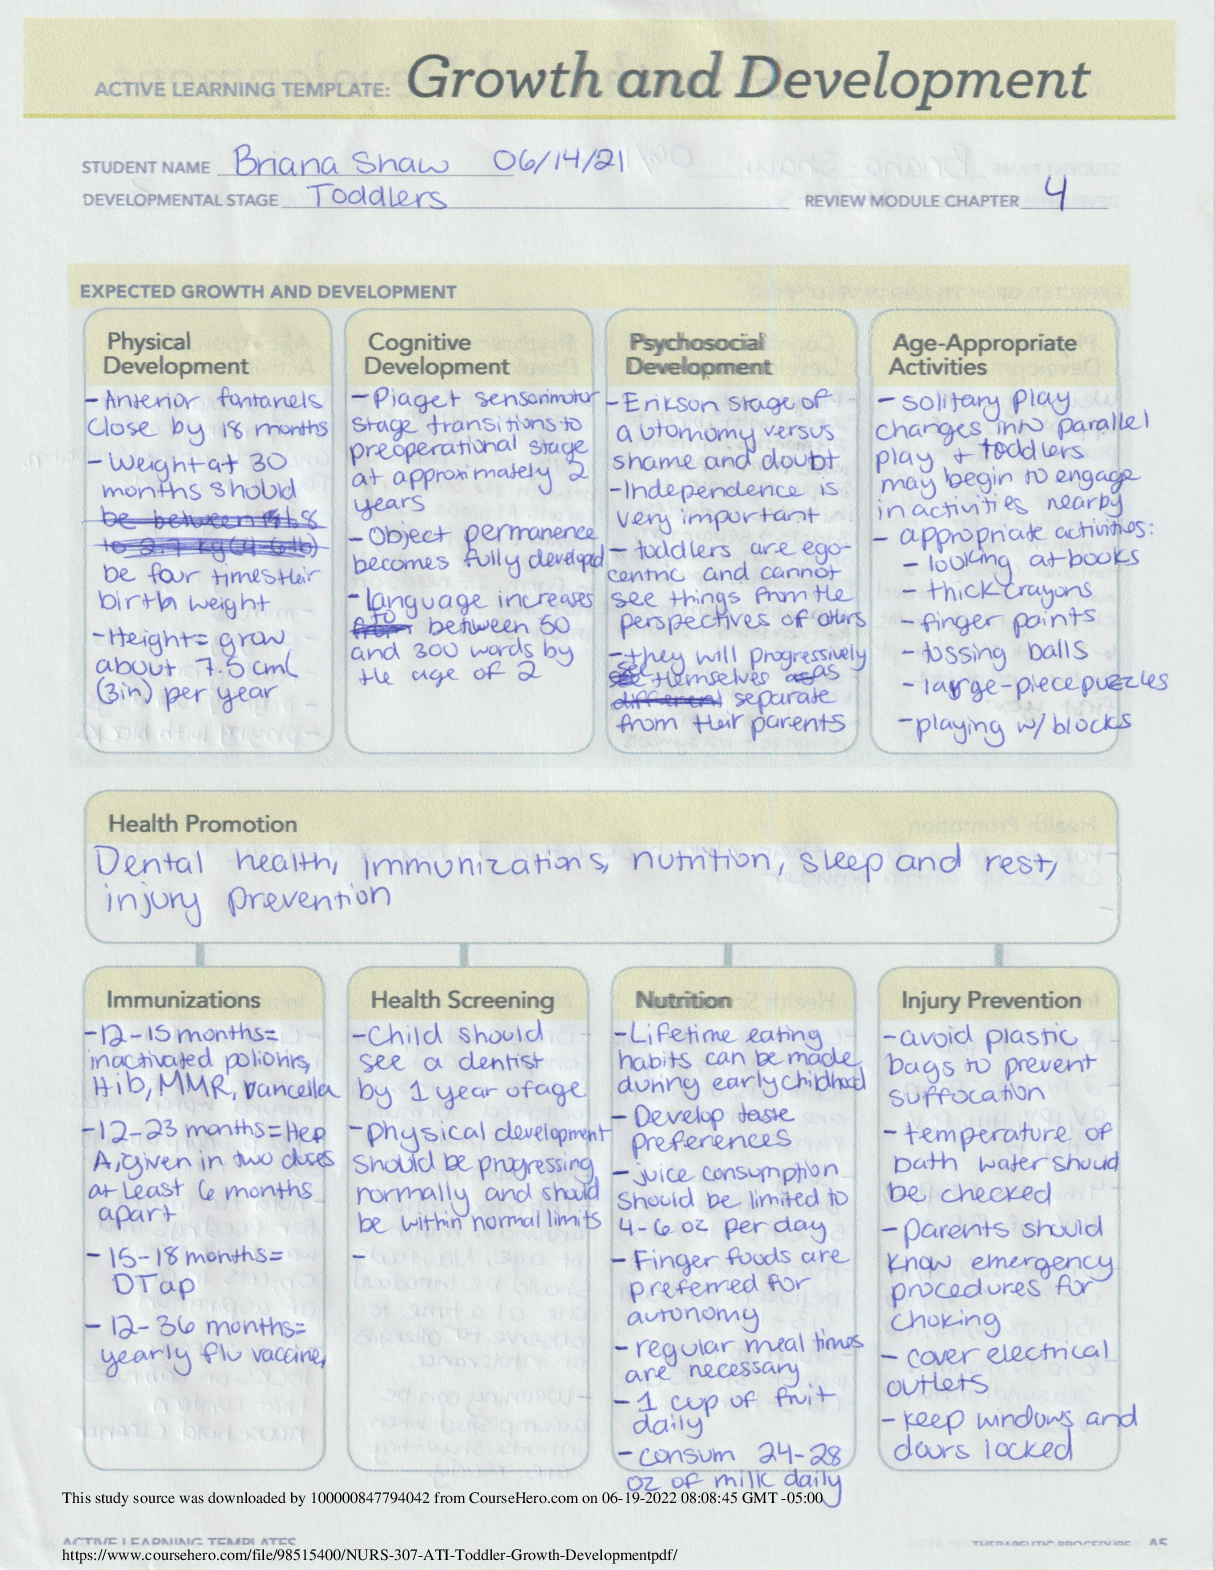 ACTIVE LEARNING TEMPLATE: Growth and Development
STUDENT NAME Briana Shaw 06/14/21
DEVELOPMENTAL STAGE Toddlers REVIEW MODULE CHAPTER 4
EXPECTED GROWTH AND DEVELOPMENT
Physical
Development
- Anterior fontanels
close by 18 months
- Weight at 30
months should
be four times their
birth weight
- Height= grow
about 7.5 cm
(3in) per year
Cognitive
Development
- Piaget sensorimotor
stage transitions to
preoperational stage
at approximately 2
years
- Object permanence
becomes fully developed
- language increases
to between 50
and 300 words by
the age of 2
Psychosocial
Development
- Erikson stage of
autonomy versus
shame and doubt
- Independence is
very important
- toddlers are ego-
centric and cannot
see things from the
perspectives of others
- they will progressively
see themselves as
separate
from their parents
Age-Appropriate
Activities
- solitary play
changes into parallel
play + toddlers
may begin to engage
in activities nearby
- appropriate activities:
- looking at books
- thick crayons
- finger paints
- tossing balls
- large-piece puzzles
- playing w/ blocks
Health Promotion
Dental health, immunizations, nutrition, sleep and rest,
injury prevention
Immunizations
- 12-15 months=
inactivated poliovirus,
Hib, MMR, varicella
- 12-23 months= Hep
A, given in two doses
at least 6 months
apart
- 15-18 months=
DTap
- 12-36 months=
yearly flu vaccine,
Health Screening
- Child should
see a dentist
by 1 year of age
- physical development
should be progressing
normally and should
be within normal limits
-
Nutrition
- Lifetime eating
habits can be made
during early childhood
- Develop taste
preferences
- juice consumption
should be limited to
4-6 oz per day
- Finger foods are
preferred for
autonomy
- regular meal times
are necessary
- 1 cup of fruit
daily
- consum 24-28
oz of milk daily
Injury Prevention
- avoid plastic
bags to prevent
suffocation
- temperature of
bath water should
be checked
- parents should
know emergency
procedures for
choking
- cover electrical
outlets
- keep windows and
doors locked
This study source was downloaded by 100000847794042 from CourseHero.com on 06-19-2022 08:08:45 GMT -05:00
ACTIVE LEARNING TEMPLATES THERAPEUTIC PROCEDURE A5
https://www.coursehero.com/file/98515400/NURS-307-ATI-Toddler-Growth-Developmentpdf/